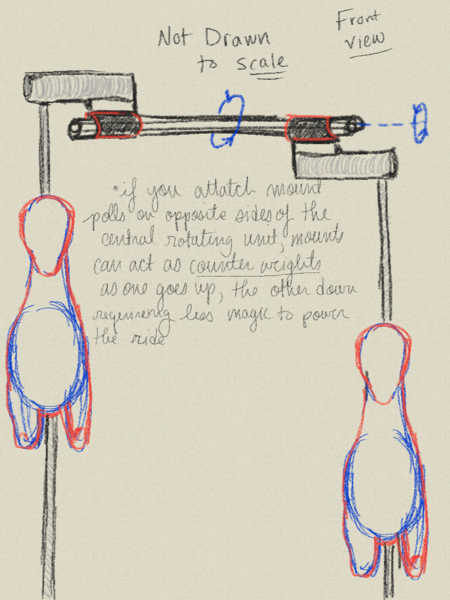 Not Drawn
to scale
Front
view
*if you attatch mount
polls on opposite sides of the
central rotating unit, mounts
can act as counter weights
as one goes up, the other down
requireing less magic to power
the ride